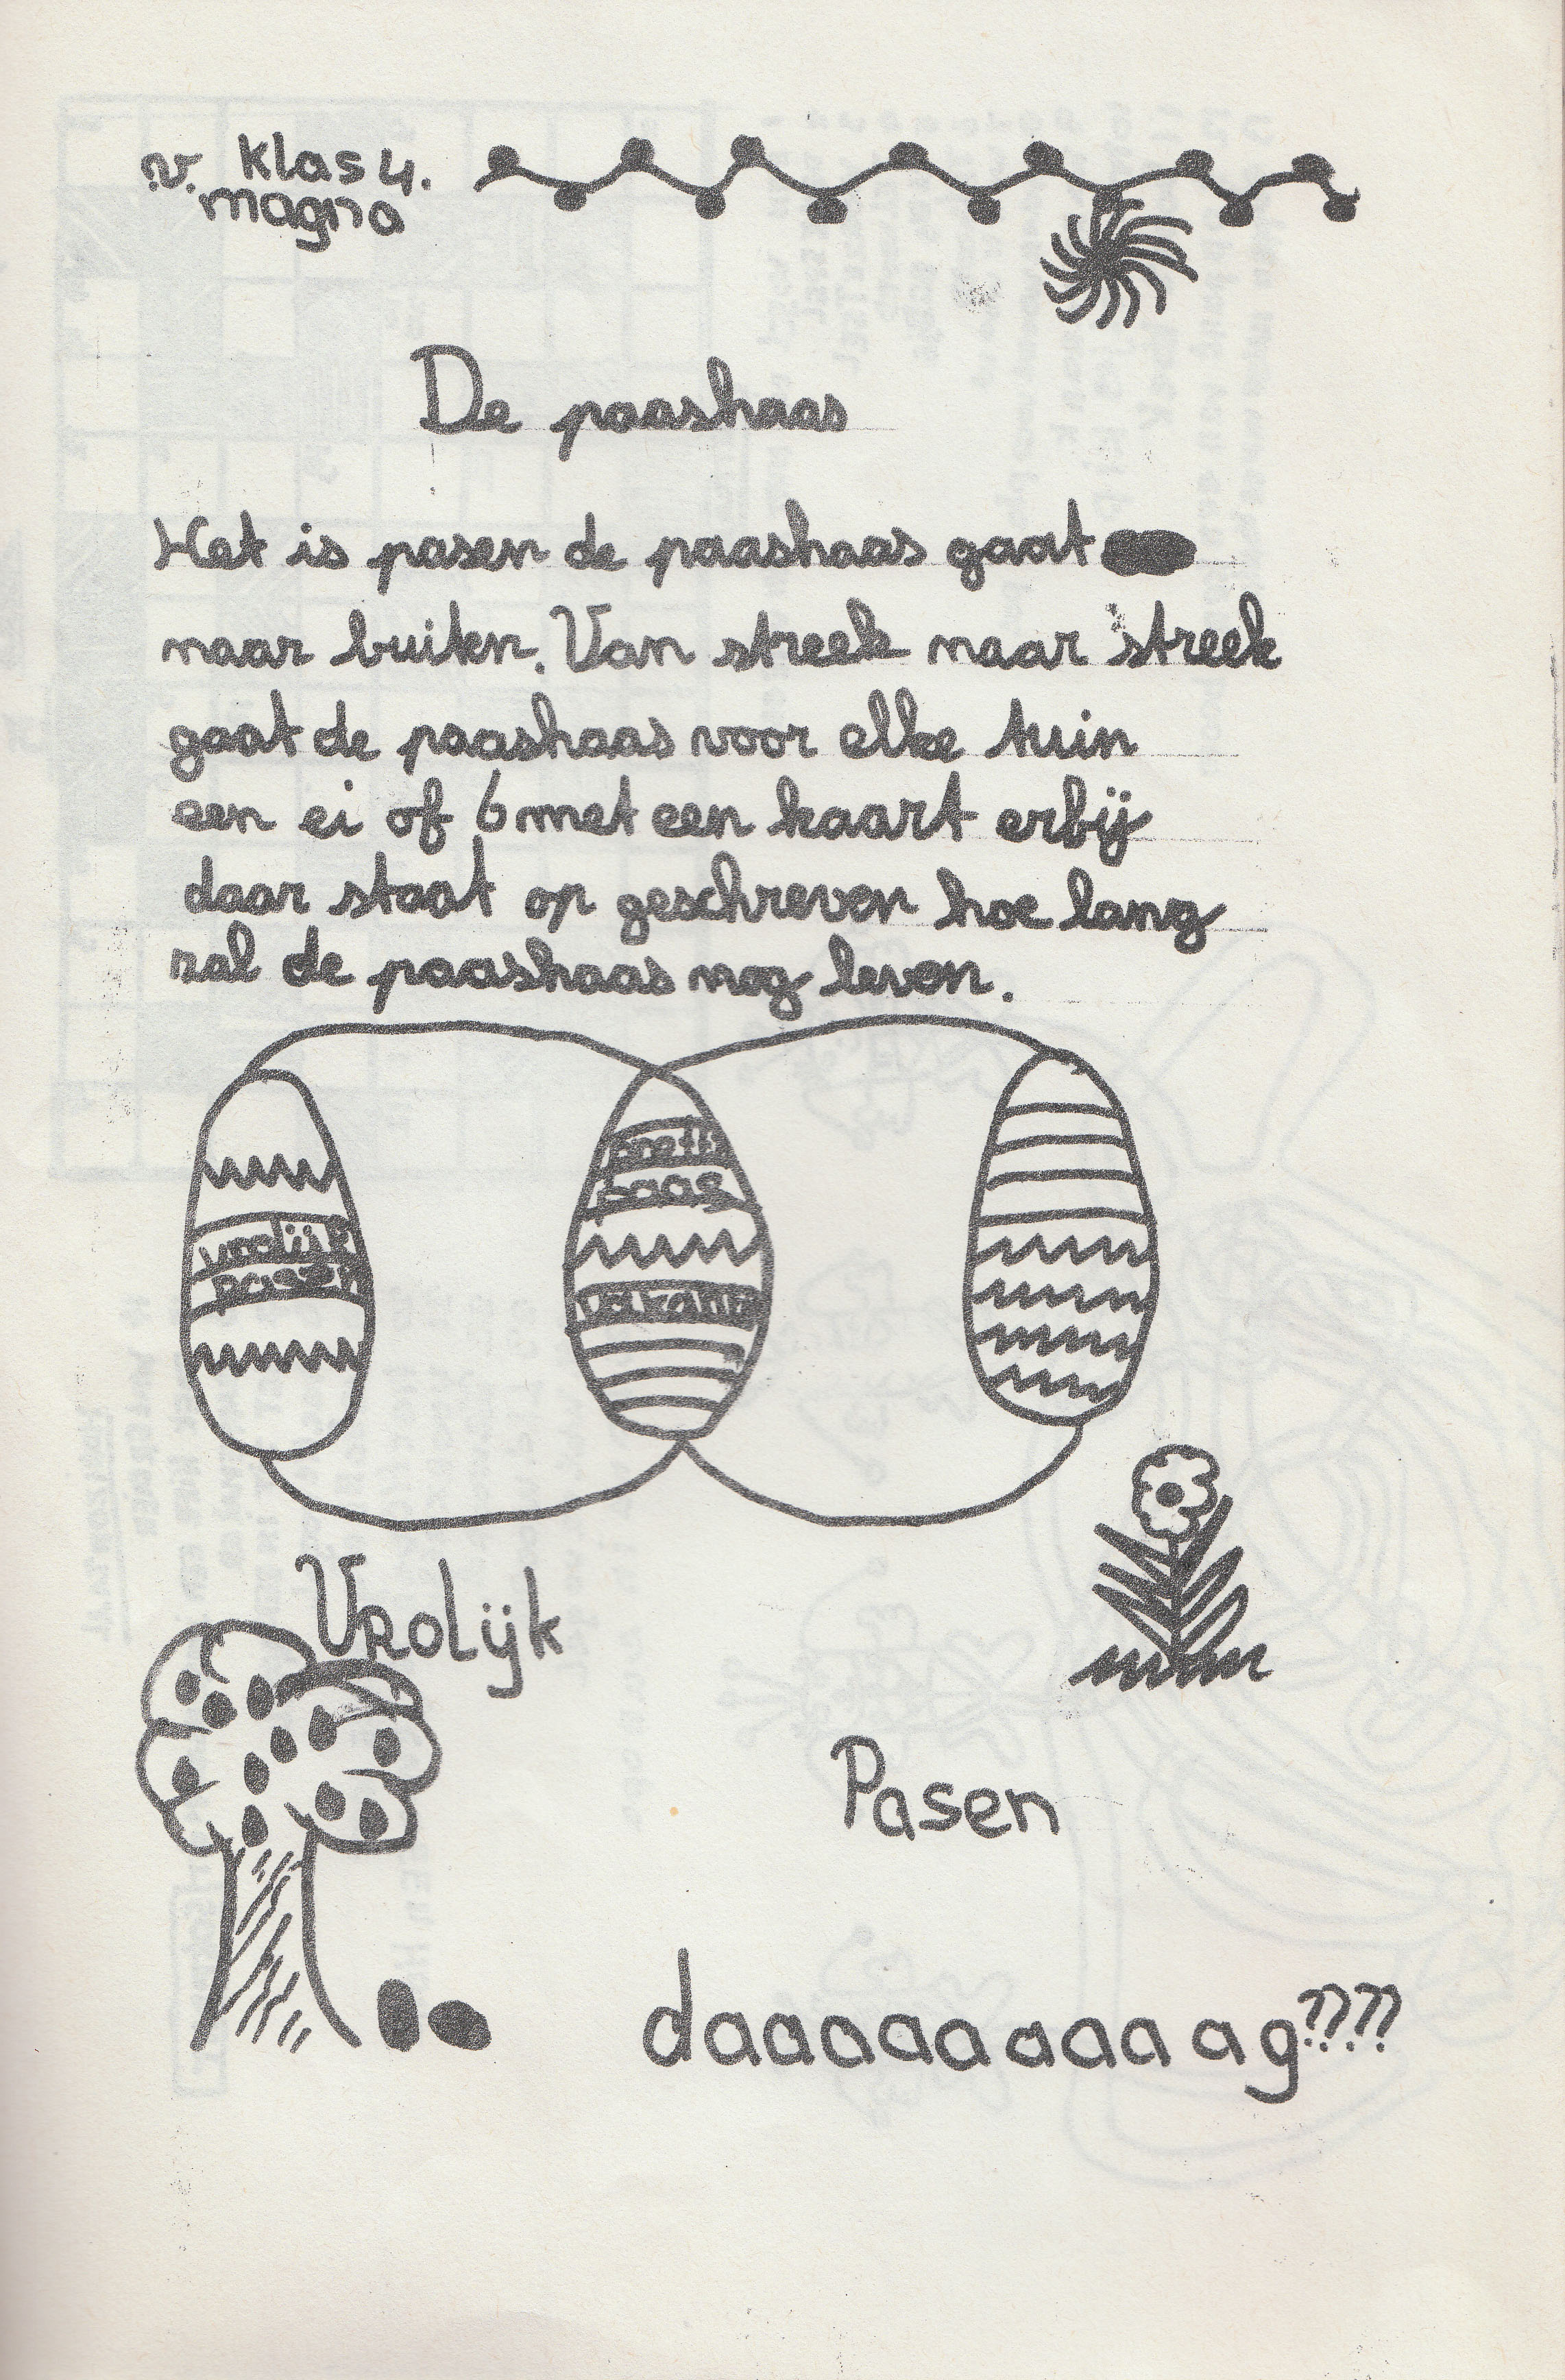 v. klas 4.
magna
De paashaas
Het is pasen de paashaas gaat
naar buiten. Van streek naar streek
gaat de paashaas voor elke tuin
een ei of 6 met een kaart erbij
daar staat op geschreven hoe lang
zal de paashaas nog leven.
vrolijk
pasen
prett
paas
vakanti
Vrolijk
Pasen
daaaaaaaaaag????